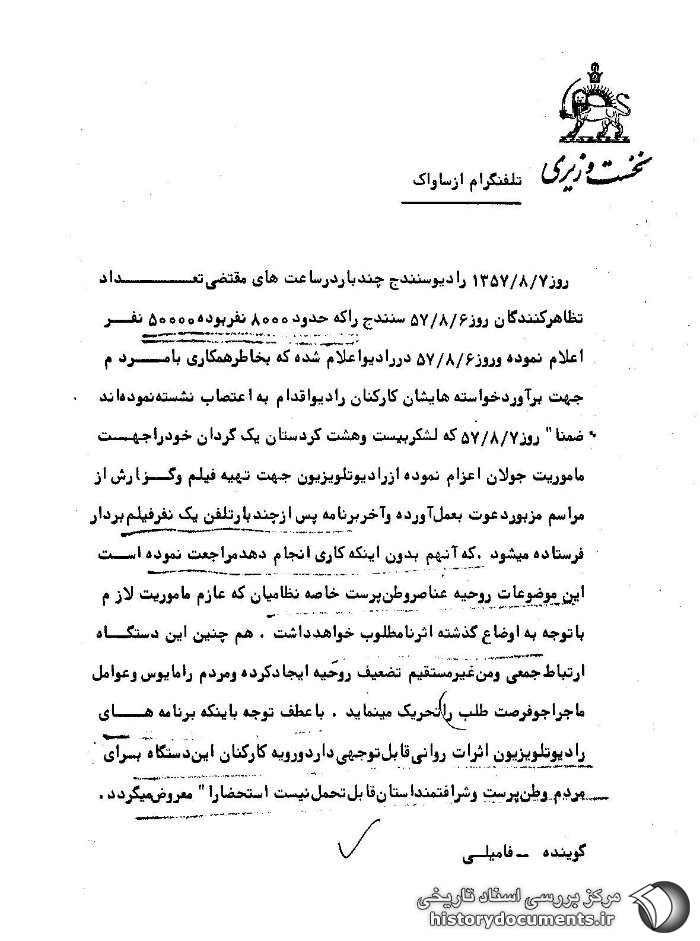 نخست وزیری
تلفنگرام از ساواک
روز ۱۳۵۷/۸/۷ رادیو سنندج چند بار در ساعت های مقتضی تعــــداد
تظاهرکنندگان روز ۵۷/۸/۶ سنندج را که حدود ۸۰۰۰ نفر بوده ۵۰۰۰۰ نفــر
اعلام نموده و روز ۵۷/۸/۶ در رادیو اعلام شده که بخاطر همکاری با مــرد م
جهت برآورد خواسته هایشان کارکنان رادیو اقدام به اعتصاب نشسته نموده اند
ضمنا" روز ۵۷/۸/۷ که لشکر بیست و هشت کردستان یک گردان خود را جهــت
ماموریت جولان اعزام نموده از رادیو تلویزیون جهت تهیه فیلم و گــزارش از
مراسم مزبور دعوت بعمل آورده و آخر برنامه پس از چند بار تلفن یک نفر فیلم بردار
فرستاده میشود . که آنهم بدون اینکه کاری انجام دهد مراجعت نموده اســت
این موضوعات روحیه عناصر وطن پرست خاصه نظامیان که عازم ماموریت لاز م
با توجه به اوضاع گذشته اثر نامطلوب خواهد داشت . هم چنین این دستگــاه
ارتباط جمعی ومن غیر مستقیم تضعیف روحیه ایجاد کرده و مردم را مایوس و عوامل
ماجراجو فرصت طلب را تحریک مینماید . با عطف توجه باینکه برنامه هــای
رادیو تلویزیون اثرات روانی قابل توجهی دارد و رویه کارکنان این دستگاه بــرای
مردم وطن پرست و شرافتمند استان قابل تحمل نیست استحضارا" معروض میگردد .
گوینده ــ فامیلــی
مرکز بررسی اسناد تاریخی
historydocuments.ir